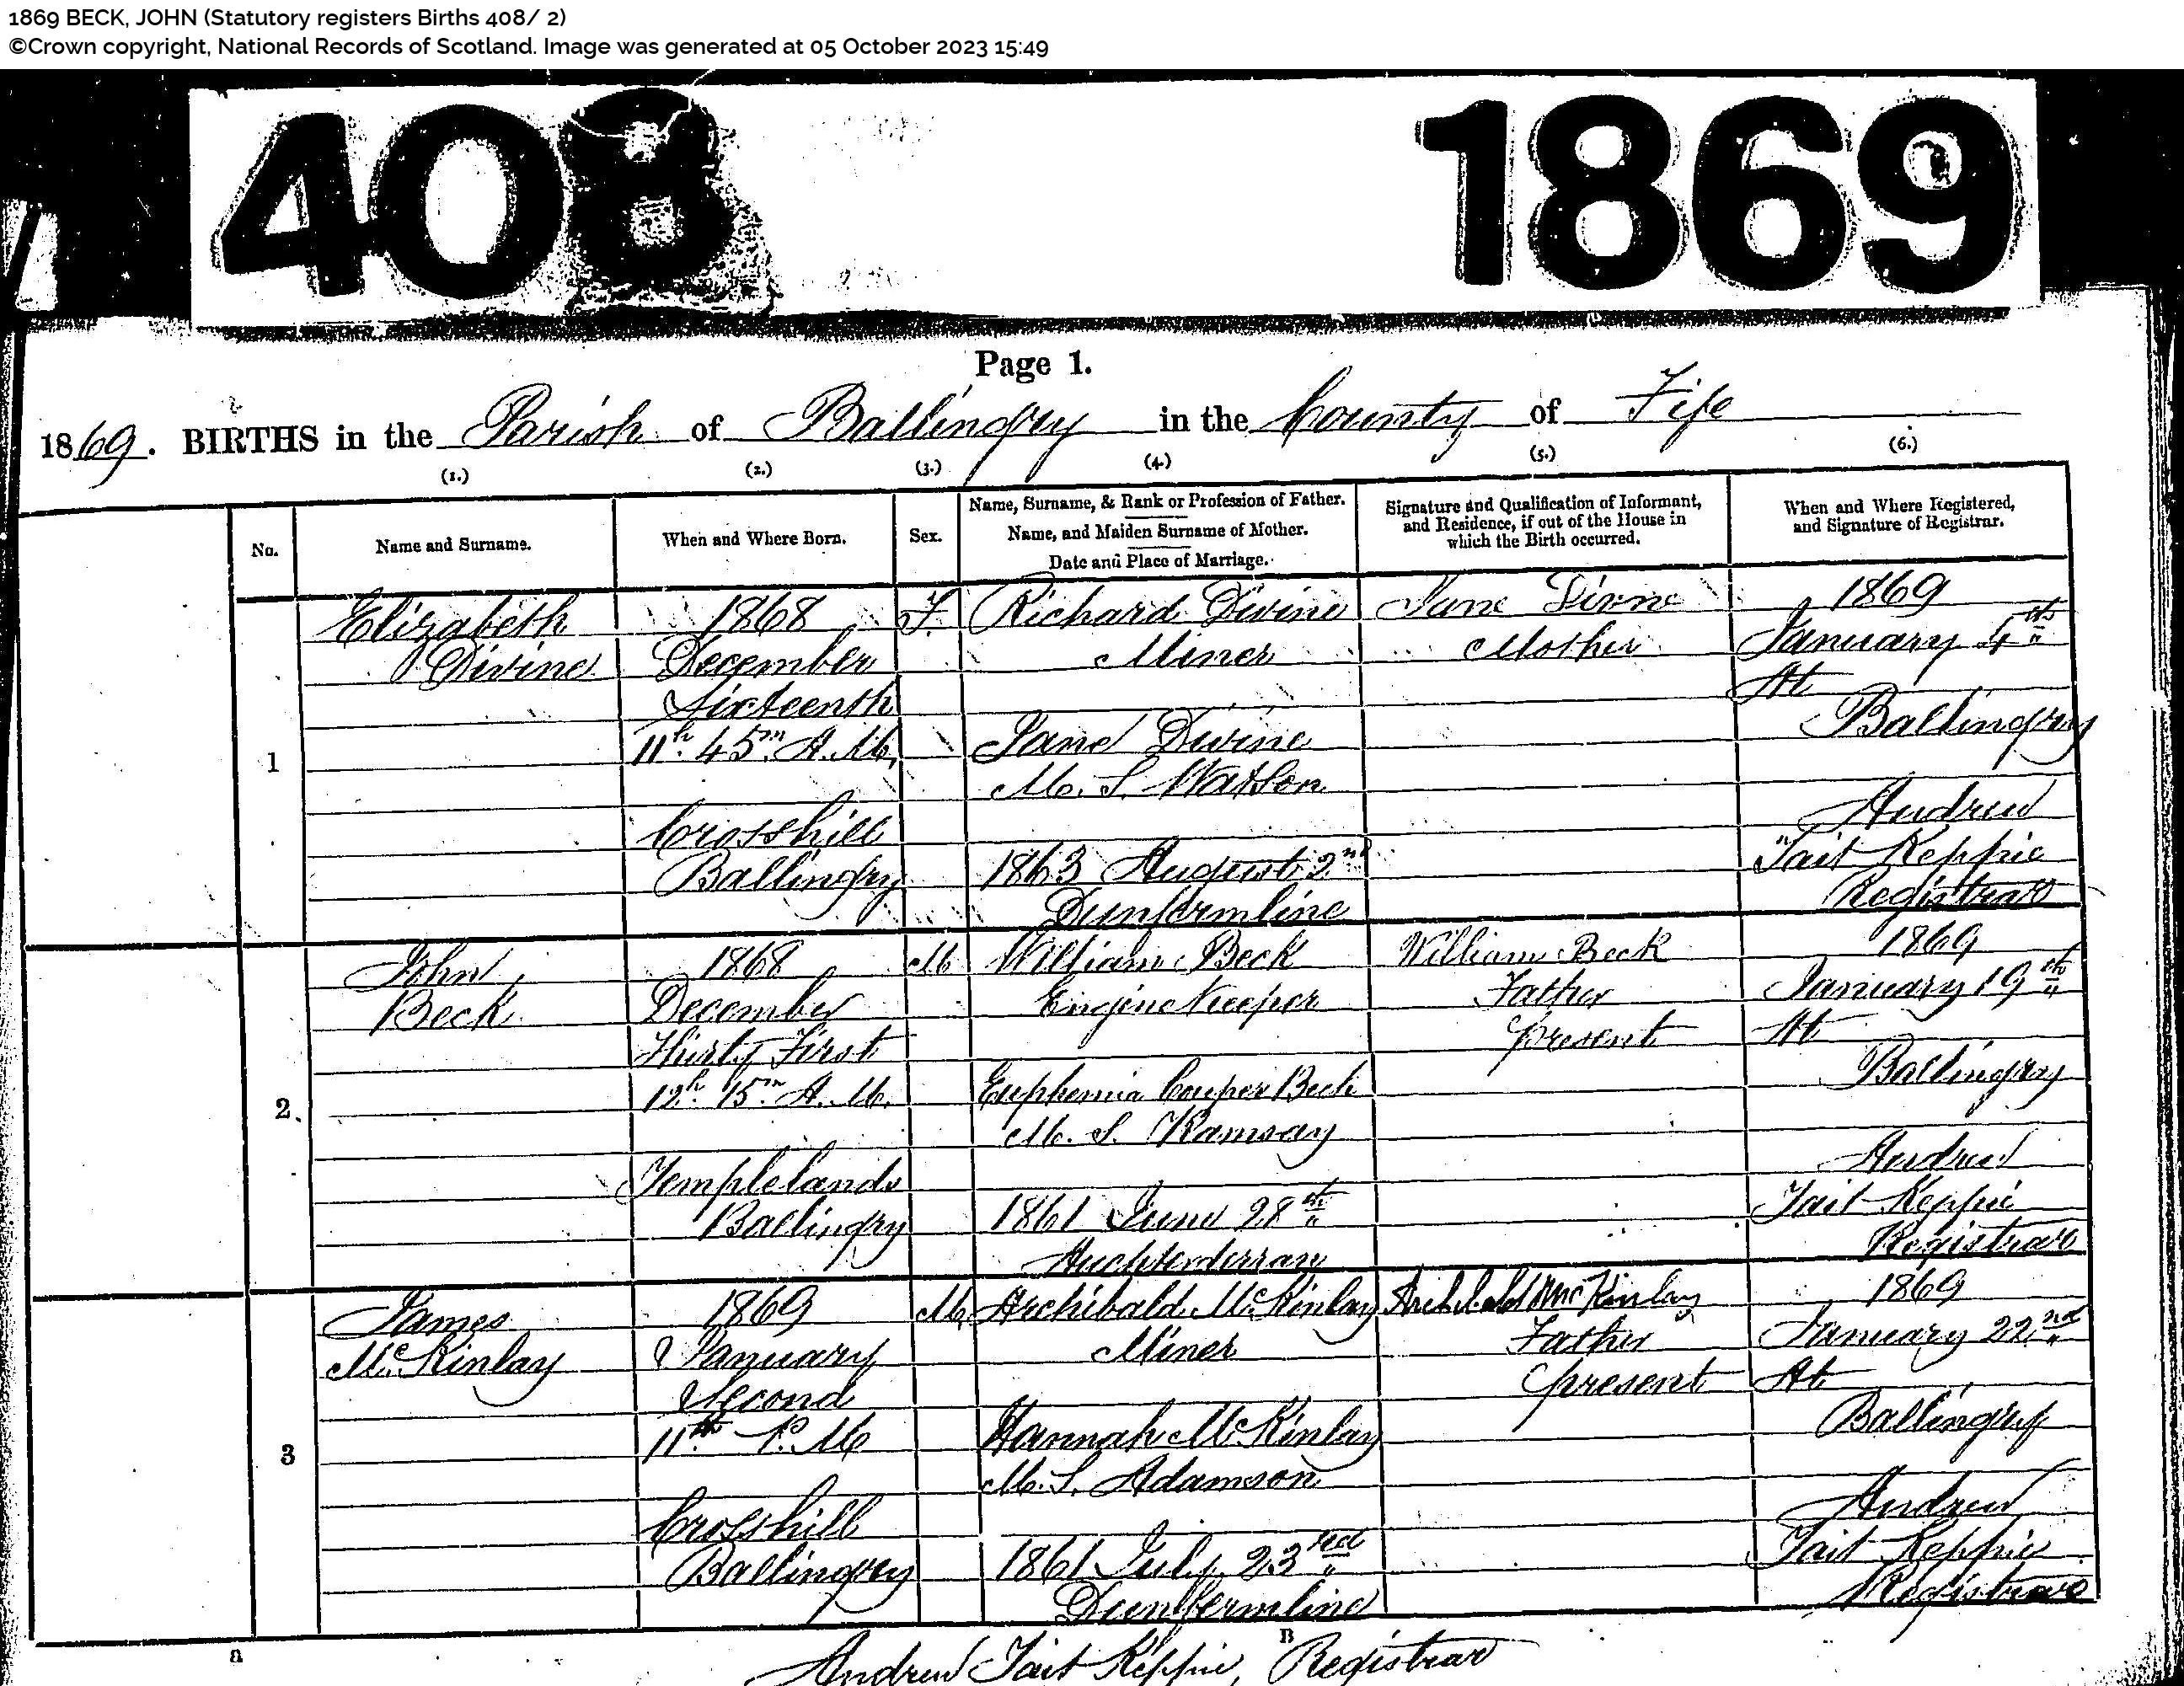 1869 BECK, JOHN (Statutory registers Births 408/ 2)
©Crown copyright, National Records of Scotland. Image was generated at 05 October 2023 15:49
408
1869
Page 1.
1869. BIRTHS in the Parish of Ballingry in the County of Fife
(1.) (2.) (3.) (4.) (5.) (6.)
No.
Name and Surname.
When and Where Born.
Sex.
Name, Surname, & Rank or Profession of Father.
Name, and Maiden Surname of Mother.
Date and Place of Marriage.
Signature and Qualification of Informant,
and Residence, if out of the House in
which the Birth occurred.
When and Where Registered,
and Signature of Registrar.
1
Elizabeth
Divine
1868
December
Sixteenth
11h. 45m. A.M.
Crosshill
Ballingry
F.
Richard Divine
Miner
Jane Divine
M. S. Watson
1863 August 2nd
Dunfermline
Jane
Mother
1869
January 4th
At
Ballingry
Andrew
Tait Keppie
Registrar
2.
John
Beck
1868
December
Thirty First
12h. 15m. A.M.
Templelands
Ballingry
M
William Beck
Engine Keeper
Euphemia Couper Beck
M. S. Ramsay
1861 June 28th
Auchterderran
William Beck
Father
Present
1869
January 19th
At
Ballingry
Andrew
Tait Keppie
Registrar
3
James
McKinlay
1869
January
Second
11h P.M
Crosshill
Ballingry
M
Archibald McKinlay
Miner
Hannah McKinlay
M. S. Adamson
1861 July 23rd
Dunfermline
Archibald McKinlay
Father
present
1869
January 22nd
At
Ballingry
Andrew
Tait Keppie
Registrar
a
B
Andrew Tait Keppie, Registrar